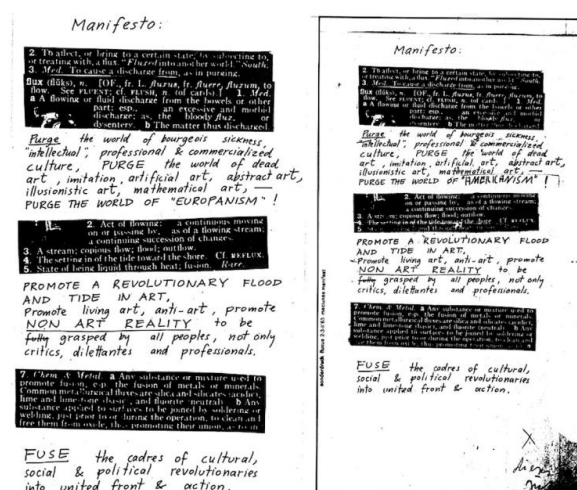 Manifesto:
2. To affect, or bring to a certain state, by subjecting to,
or treating with, a flux. "Fluxed into another world." South.
3. Med. To cause a discharge from, as in purging.
flux (flŭks), n. [OF., fr. L. fluxus, fr. fluere, fluxum, to
flow. See FLUENT; cf. FLUSH, n. (of cards).] 1. Med.
a A flowing or fluid discharge from the bowels or other
part; esp., an excessive and morbid
discharge; as, the bloody flux, or
dysentery. b The matter thus discharged.
Purge the world of bourgeois sickness,
"intellectual", professional & commercialized
culture, PURGE the world of dead
art, imitation, artificial art, abstract art,
illusionistic art, mathematical art, —
PURGE THE WORLD OF "EUROPANISM" !
2. Act of flowing: a continuous moving
on or passing by, as of a flowing stream;
a continuing succession of changes.
3. A stream; copious flow; flood; outflow.
4. The setting in of the tide toward the shore. Cf. REFLUX.
5. State of being liquid through heat; fusion. Rare.
PROMOTE A REVOLUTIONARY FLOOD
AND TIDE IN ART,
Promote living art, anti-art, promote
NON ART REALITY to be
fully grasped by all peoples, not only
critics, dilettantes and professionals.
7. Chem. & Metal. a Any substance or mixture used to
promote fusion, esp. the fusion of metals or minerals.
Common metallurgical fluxes are silica and silicates (acidic),
lime and limestone (basic), and fluorite (neutral). b Any
substance applied to surfaces to be joined by soldering or
welding, just prior to or during the operation, to clean and
free them from oxide, thus promoting their union, as
FUSE the cadres of cultural,
social & political revolutionaries
into united front & action.
Manifesto:
2. To affect, or bring to a certain state, by subjecting to,
or treating with, a flux. "Fluxed into another world." South.
3. Med. To cause a discharge from, as in purging.
flux (flŭks), n. [OF., fr. L. fluxus, fr. fluere, fluxum, to
flow. See FLUENT; cf. FLUSH, n. (of cards).] 1. Med.
a A flowing or fluid discharge from the bowels or other
part; esp., an excessive and morbid
discharge; as, the bloody flux, or
dysentery. b The matter thus discharged.
Purge the world of bourgeois sickness,
"intellectual", professional & commercialized
culture, PURGE the world of dead
art, imitation, artificial art, abstract art,
illusionistic art, mathematical art, —
PURGE THE WORLD OF "AMERIKANISM" !
2. Act of flowing: a continuous moving
on or passing by, as of a flowing stream;
a continuing succession of changes.
3. A stream; copious flow; flood; outflow.
4. The setting in of the tide toward the shore. Cf. REFLUX.
PROMOTE A REVOLUTIONARY FLOOD
AND TIDE IN ART.
Promote living art, anti-art, promote
NON ART REALITY to be
fully grasped by all peoples, not only
critics, dilettantes and professionals.
7. Chem. & Metal. a Any substance or mixture used to
promote fusion, esp. the fusion of metals or minerals.
Common metallurgical fluxes are silica and silicates (acidic),
lime and limestone (basic), and fluorite (neutral). b Any
substance applied to surfaces to be joined by soldering or
welding, just prior to or during the operation, to clean and
FUSE the cadres of cultural,
social & political revolutionaries
into united front & action.